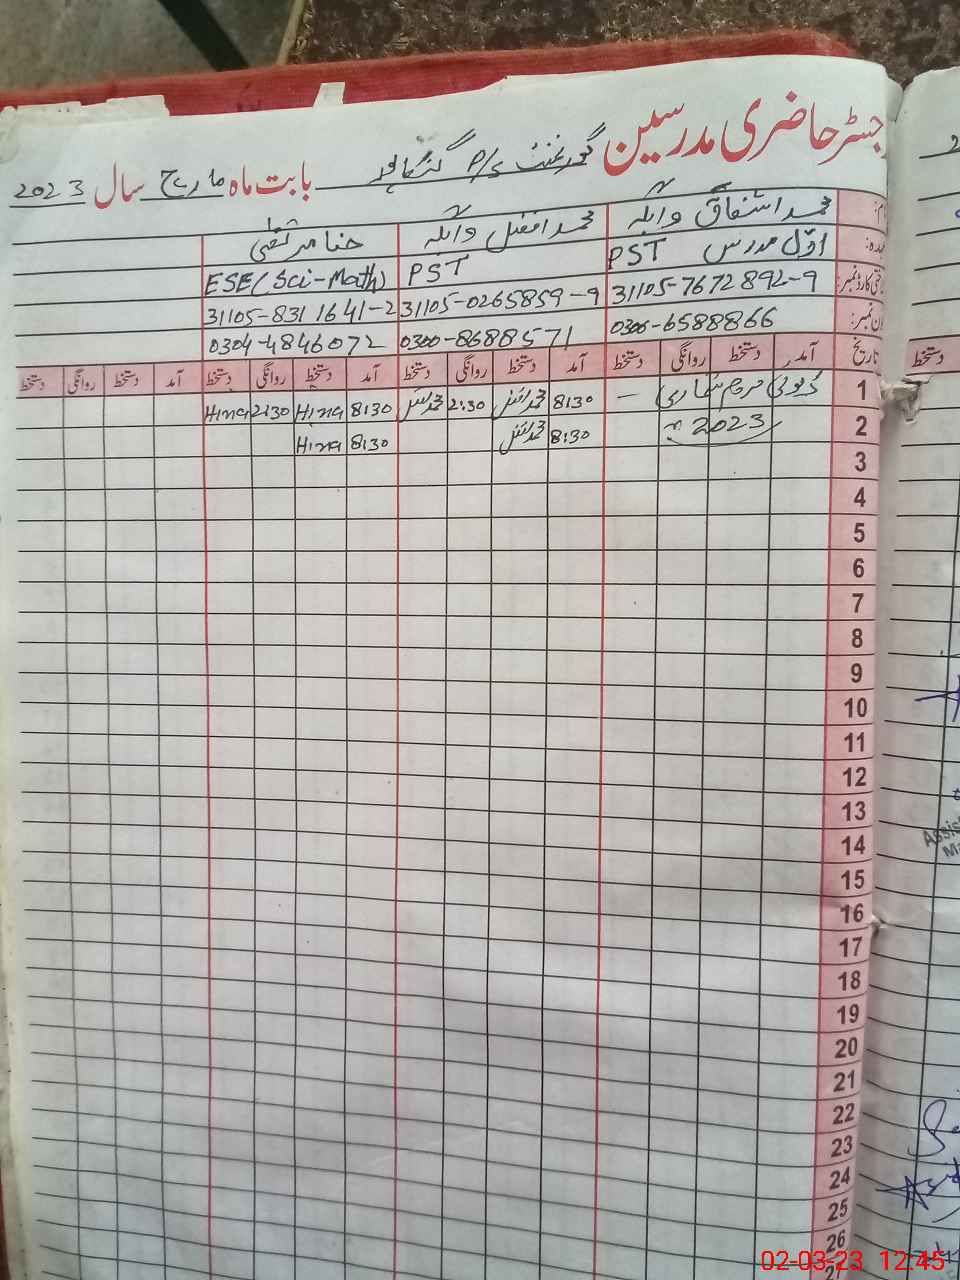 جسٹر حاضری مدرسین گورنمنٹ P/S بابت ماہ مارچ سال 2023
محمد اشفاق وائلہ محمد افضل وائلہ حنا مرتضی
عہدہ: اوّل مدرس PST PST ESE (Sci-Math)
31105-7672892-9 31105-0265859-9 31105-8311641-2
0300-6588866 0300-8688571 0304-4846072
تاریخ آمد دستخط روانگی دستخط آمد دستخط روانگی دستخط آمد دستخط روانگی دستخط آمد دستخط روانگی دستخط
1 ڈیوٹی مردم شماری 8:30 محمد افضل 2:30 محمد افضل 8:30 Hina 2:30 Hina
2 2023 8:30 محمد افضل 8:30 Hina
3
4
5
6
7
8
9
10
11
12
13
14
15
16
17
18
19
20
21
22
23
24
25
26
دستخط
02-03-23 12:45